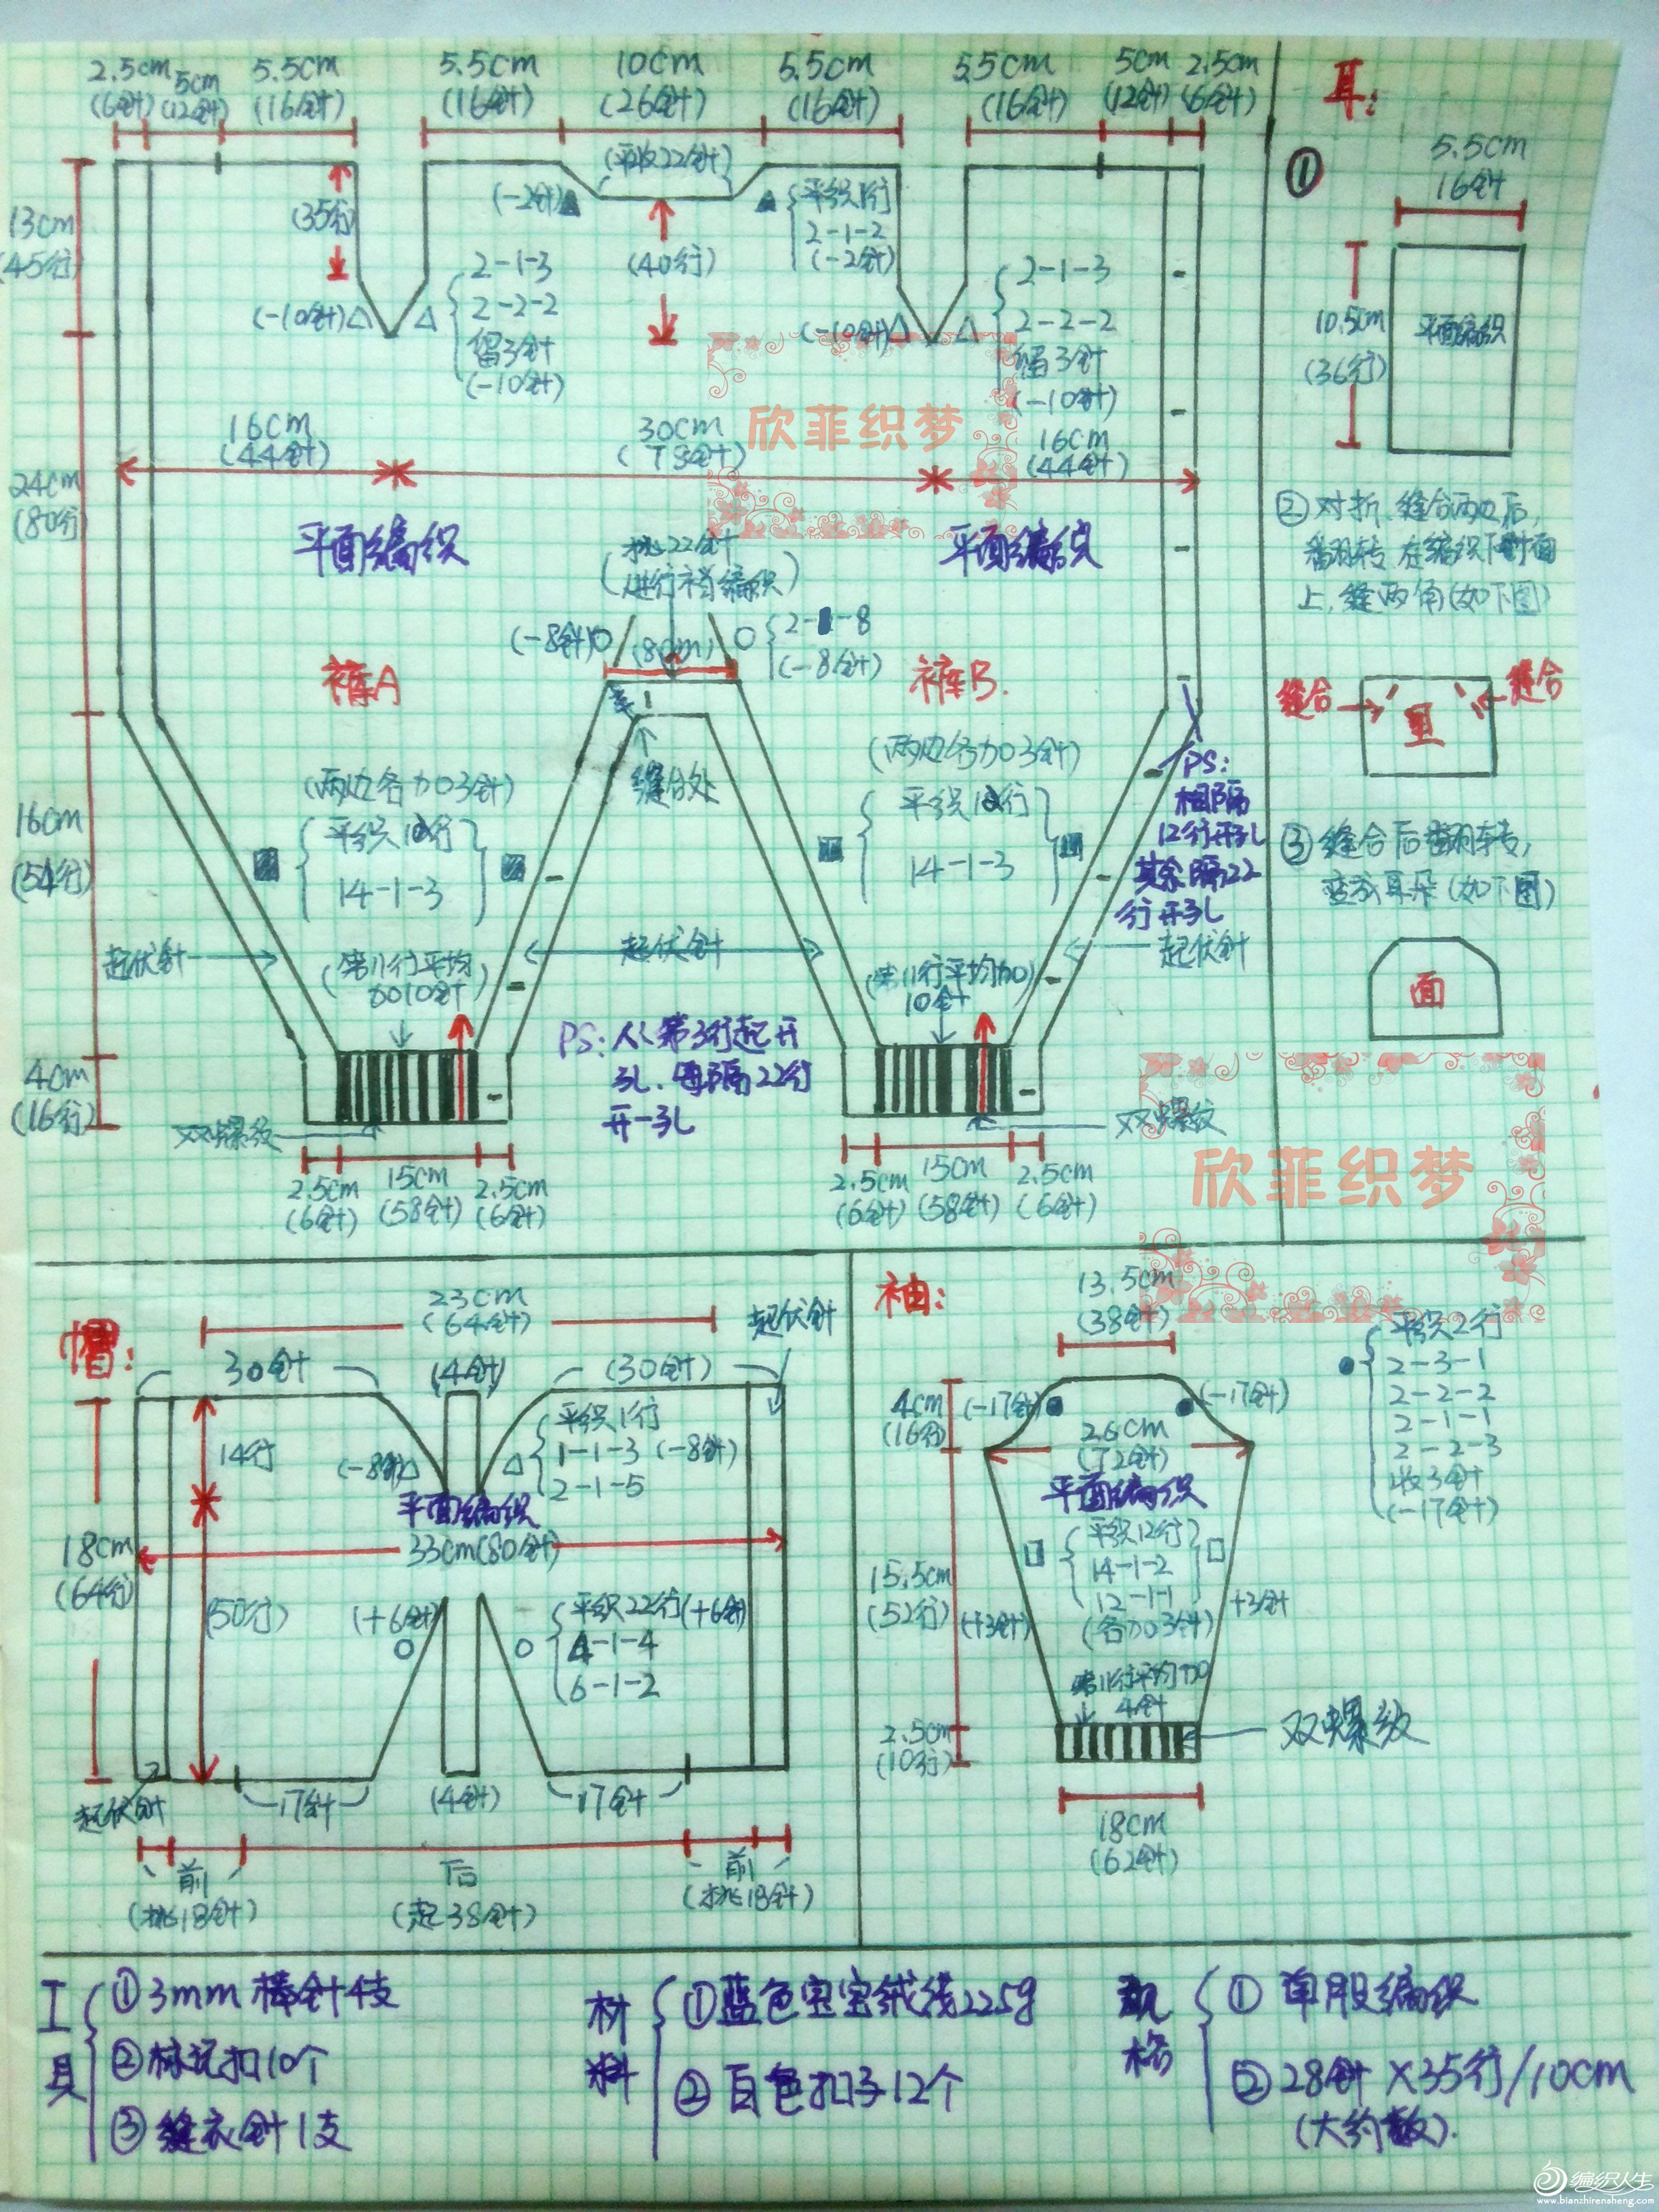 2.5cm 5cm 5.5cm 5.5cm 10cm 5.5cm 5.5cm 5cm 2.5cm
(6针) (12针) (16针) (16针) (26针) (16针) (16针) (12针) (6针)
(平收22针)
13cm
(45行)
(35行)
(-2针)
平织1行
2-1-2
(-2针)
(40行)
2-1-3
2-2-2
留3针
(-10针)
(-10针)
(-10针)
2-1-3
2-2-2
留3针
(-10针)
欣菲织梦
16cm
(44针)
30cm
(78针)
16cm
(44针)
24cm
(80行)
平面编织
平面编织
挑22针
(进行裆编织)
(-8针)
(8cm)
2-1-8
(-8针)
裤A
裤B.
缝合处
(两边各加3针)
平织12行
14-1-3
(两边各加3针)
平织12行
14-1-3
PS:
相隔
12行开孔
其余隔22
行开孔
16cm
(54行)
起伏针
起伏针
起伏针
(第11行平均
加10针)
(第11行平均加
10针)
PS:从第3行起开
孔.每隔22行
开一孔
4cm
(16行)
双螺纹
双螺纹
2.5cm 15cm 2.5cm
(6针) (58针) (6针)
2.5cm 15cm 2.5cm
(6针) (58针) (6针)
耳:
①
5.5cm
16针
10.5cm
(36行)
平面编织
②对折.缝合两边后,
上,缝两角(如下图)
缝合
缝合
③缝合后翻转,
变成耳朵(如下图)
面
欣菲织梦
帽:
23cm
(64针)
起伏针
30针
(4针)
(30针)
14行
(-8针)
平织1行
1-1-3 (-8针)
2-1-5
平面编织
33cm(80针)
18cm
(64行)
(50行)
(+6针)
平织22行(+6针)
4-1-4
6-1-2
起伏针
17针
(4针)
17针
前
(挑18针)
后
(起38针)
前
(挑18针)
袖:
13.5cm
(38针)
4cm
(16行)
(-17针)
(-17针)
26cm
(72针)
平织2行
2-3-1
2-2-2
2-1-1
2-2-3
收3针
(-17针)
平面编织
平织12行
14-1-2
12-1-1
(各加3针)
15.5cm
(52行)
(+3针)
+3针
第11行平均加
4针
2.5cm
(10行)
双螺纹
18cm
(62针)
工具
①3mm棒针4支
②标记扣10个
③缝衣针1支
材料
①蓝色宝宝绒线225g
②白色扣子12个
规格
①单股编织
②28针×35行/10cm
(大约数).
编织人生
www.bianzhirensheng.com